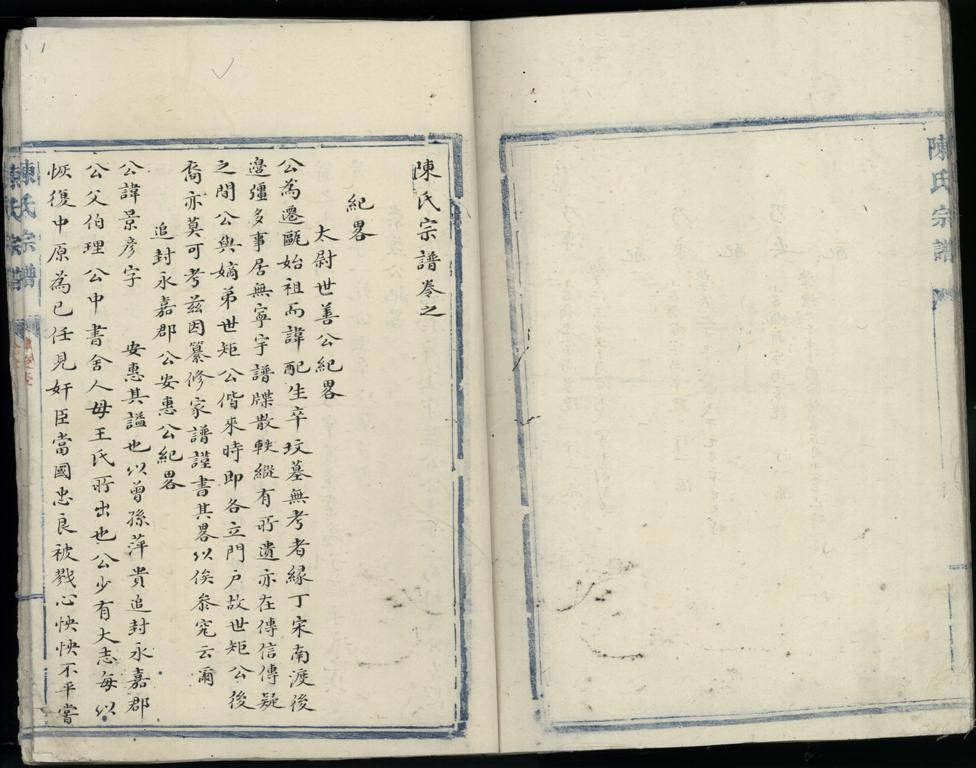 陳氏宗譜
陳氏宗譜卷之
紀畧
太尉世善公紀畧
公為遷甌始祖而諱配生卒坟墓無考者緣丁宋南渡後
邊彊多事居無寧宇譜牒散軼縱有所遺亦在傳信傳疑
之間公與嫡弟世矩公偕來時即各立門户故世矩公後
裔亦莫可考茲因纂修家譜謹書其畧以俟叅究云爾
追封永嘉郡公安惠公紀畧
公諱景彦字 安惠其謚也以曾孫萍貴追封永嘉郡
公父伯理公中書舍人母王氏所出也公少有大志每以
恢復中原為已任見奸臣當國忠良被戮心怏怏不平嘗
陳氏宗譜